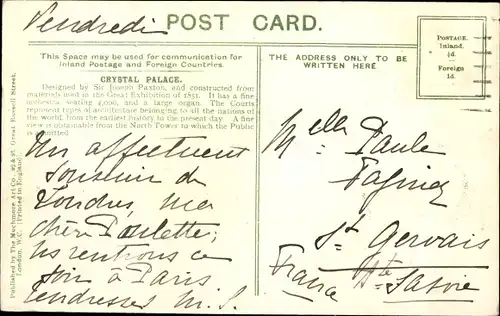 Vendredi
POST CARD.
This Space may be used for communication for
Inland Postage and Foreign Countries.
CRYSTAL PALACE.
Designed by Sir Joseph Paxton, and constructed from
materials used in the Great Exhibition of 1851. It has a fine
orchestra seating 4,000, and a large organ. The Courts
represent types of architecture belonging to all the nations of
the world, from the earliest history to the present day. A fine
view is obtainable from the North Tower to which the Public
is admitted
Un affectueux
souvenir de
Londres, ma
chère Paulette;
ns rentrons ce
soir à Paris
tendresses M. S.
THE ADDRESS ONLY TO BE
WRITTEN HERE
POSTAGE.
Inland.
½d.
Foreign
1d.
Melle Paule
St Gervais
Hte Savoie
France
Published by The Muchmore Art Co., 92 Great Russell Street,
London, W.C. (Printed in England)